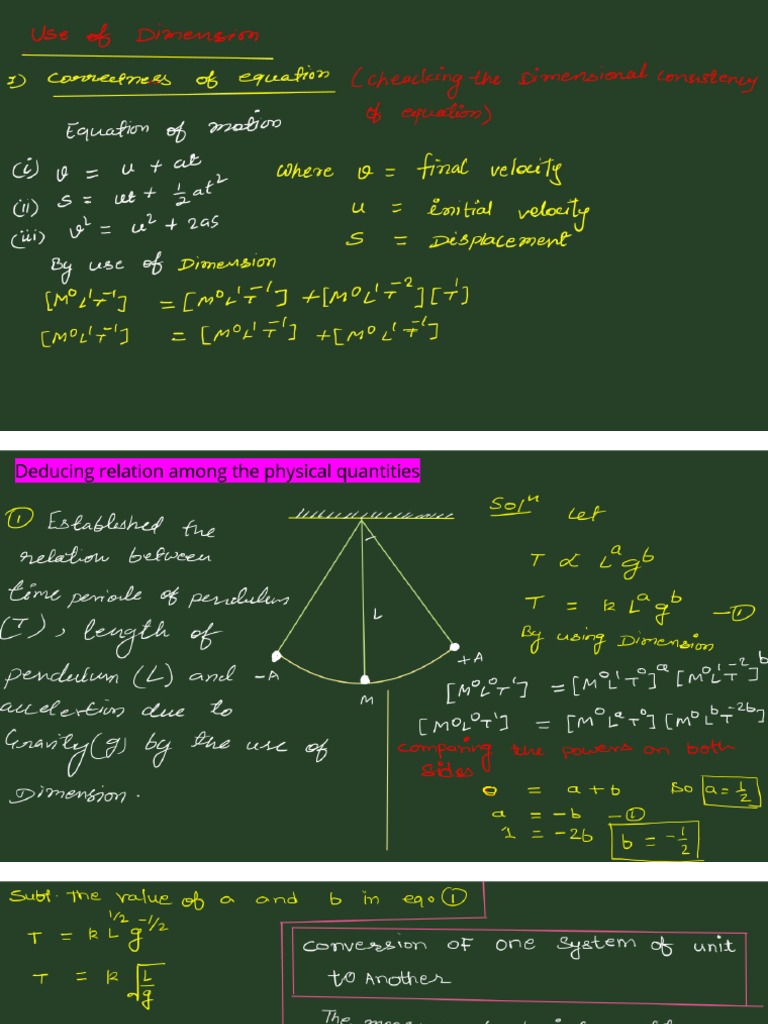 Use of Dimension
I) correctness of equation (cheacking the Dimensional consistency
of equation)
Equation of motion
(i) v = u + at where v = final velocity
(ii) S = ut + 1/2 at² u = initial velocity
(iii) v² = u² + 2as S = Displacement
By use of Dimension
[M⁰L¹T⁻¹] = [M⁰L¹T⁻¹] + [M⁰L¹T⁻²][T¹]
[M⁰L¹T⁻¹] = [M⁰L¹T⁻¹] + [M⁰L¹T⁻¹]
Deducing relation among the physical quantities
① Established the
relation between
time periode of pendulum
(T), length of
pendulum (L) and
accelertion due to
Gravity(g) by the use of
Dimension.
L
-A
+A
M
Solⁿ Let
T ∝ Lᵃgᵇ
T = k Lᵃgᵇ —①
By using Dimension
[M⁰L⁰T¹] = [M⁰L¹T⁰]ᵃ [M⁰L¹T⁻²]ᵇ
[M⁰L⁰T¹] = [M⁰LᵃT⁰] [M⁰LᵇT⁻²ᵇ]
comparing the powers on both
sides
0 = a + b so a = 1/2
a = -b —①
1 = -2b b = -1/2
Subt. the value of a and b in eqo ①
T = k L^1/2 g^-1/2
T = k √L/g
conversion of one system of unit
to Another